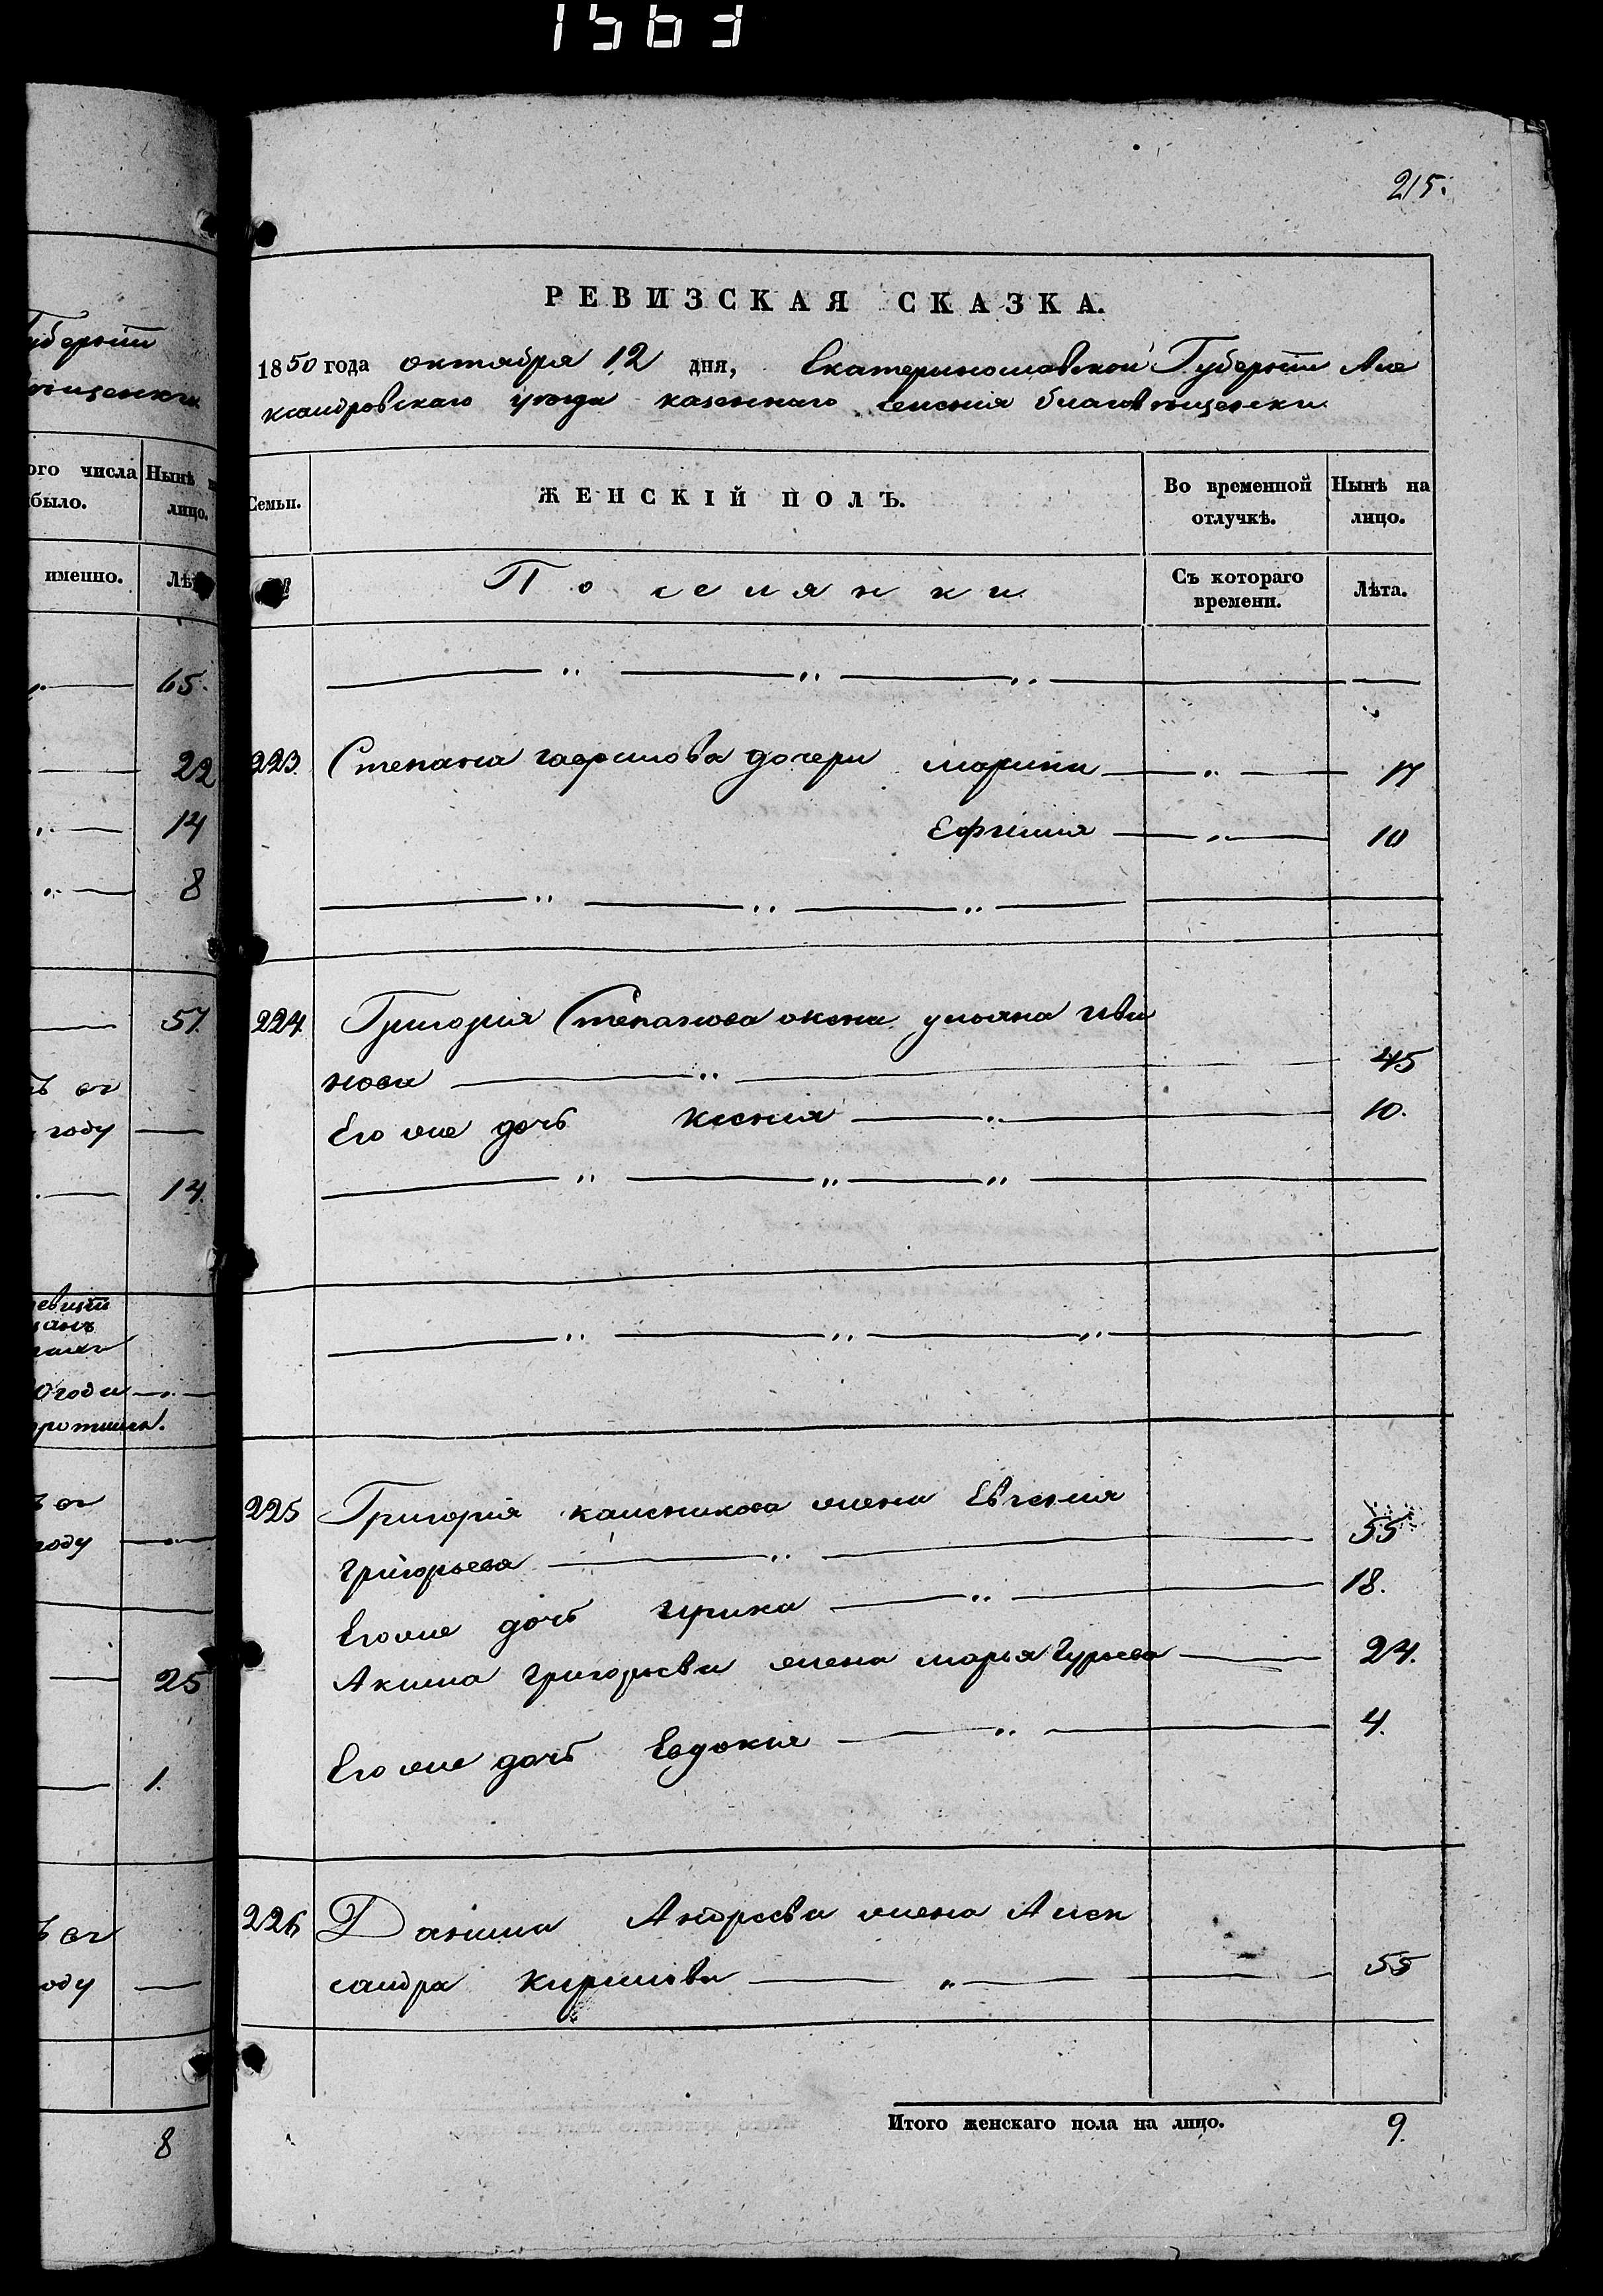 1563
215.
РЕВИЗСКАЯ СКАЗКА.
1850 года октября 12 дня, Екатеринославской Губернiи Але
ксандровскаго уезда казеннаго селенiя благовещенки
Семьи.
ЖЕНСКIЙ ПОЛЪ.
Во временной отлучкѣ.
Нынѣ на лицо.
Поселянки
Съ котораго времени.
Лѣта.
223. Степана гаврилова дочери марина 17
Ефимия 10
224 Григорiя Степанова жена ульяна ива
нова 45
Его же дочь ксенiя 10.
225 Григорiя жена Евгения
григорьева 55
Его же дочь ирина 18.
Акима григорьева жена марья гурьева 24.
Его же дочь Евдокiя 4.
226 Данила Андреева жена Алек
сандра кирилова 55
Итого женскаго пола на лицо. 9.
Губернiи
ого числа
было.
Нынѣ
лицо.
именно.
65.
22
14
8
57.
году
14.
году
25
1.
8